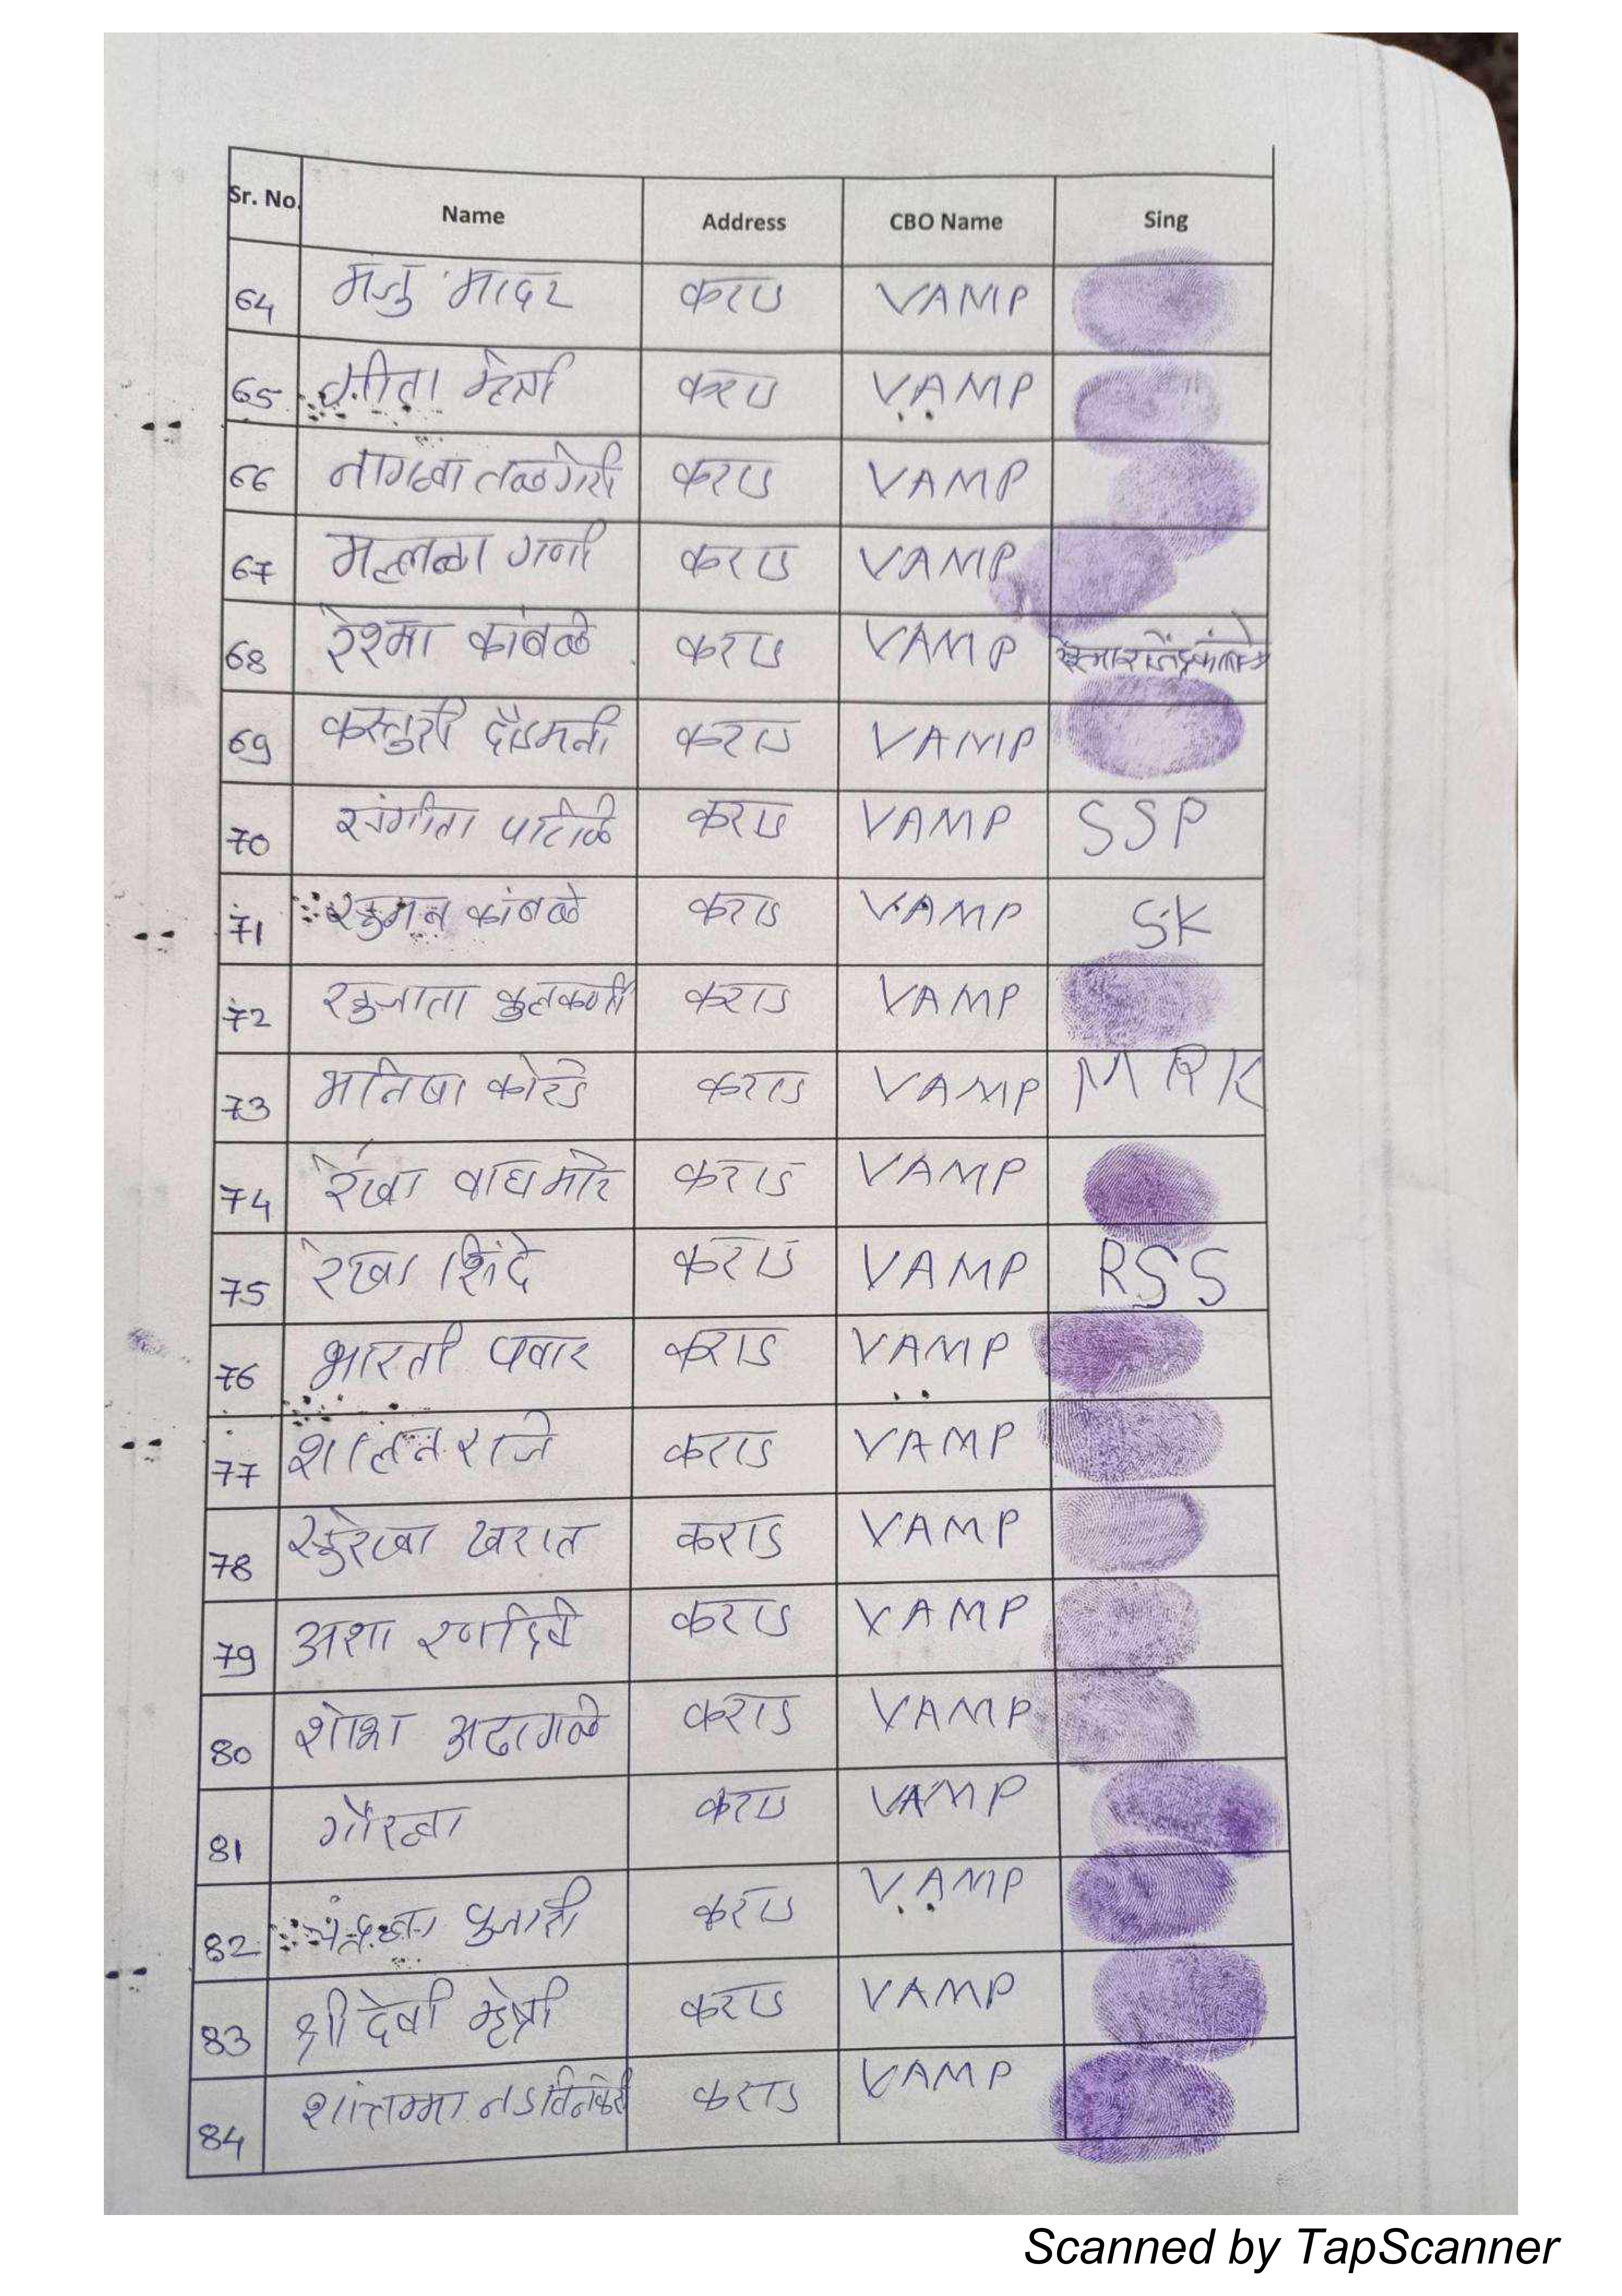 Sr. No. Name Address CBO Name Sing
64 मंजु मादर कराड VAMP
65 गीता म्हेत्री कराड VAMP
66 नागव्वा तळगेरी कराड VAMP
67 मल्लव्वा गणी कराड VAMP
68 रेश्मा कांबळे कराड VAMP
69 कस्तुरी दौडमनी कराड VAMP
70 संगीता पाटील कराड VAMP SSP
71 सुमन कांबळे कराड VAMP SK
72 सुजाता कुलकर्णी कराड VAMP
73 मनिषा कोरडे कराड VAMP MRK
74 रेखा वाघमारे कराड VAMP
75 रेखा शिंदे कराड VAMP RSS
76 भारती पवार कराड VAMP
77 शालन राजे कराड VAMP
78 सुरेखा खरात कराड VAMP
79 अशा रणदिवे कराड VAMP
80 शोभा अढागळे कराड VAMP
81 गौरव्वा कराड VAMP
82 पुजारी कराड VAMP
83 श्रीदेवी म्हेत्री कराड VAMP
84 शांतम्मा कराड VAMP
Scanned by TapScanner